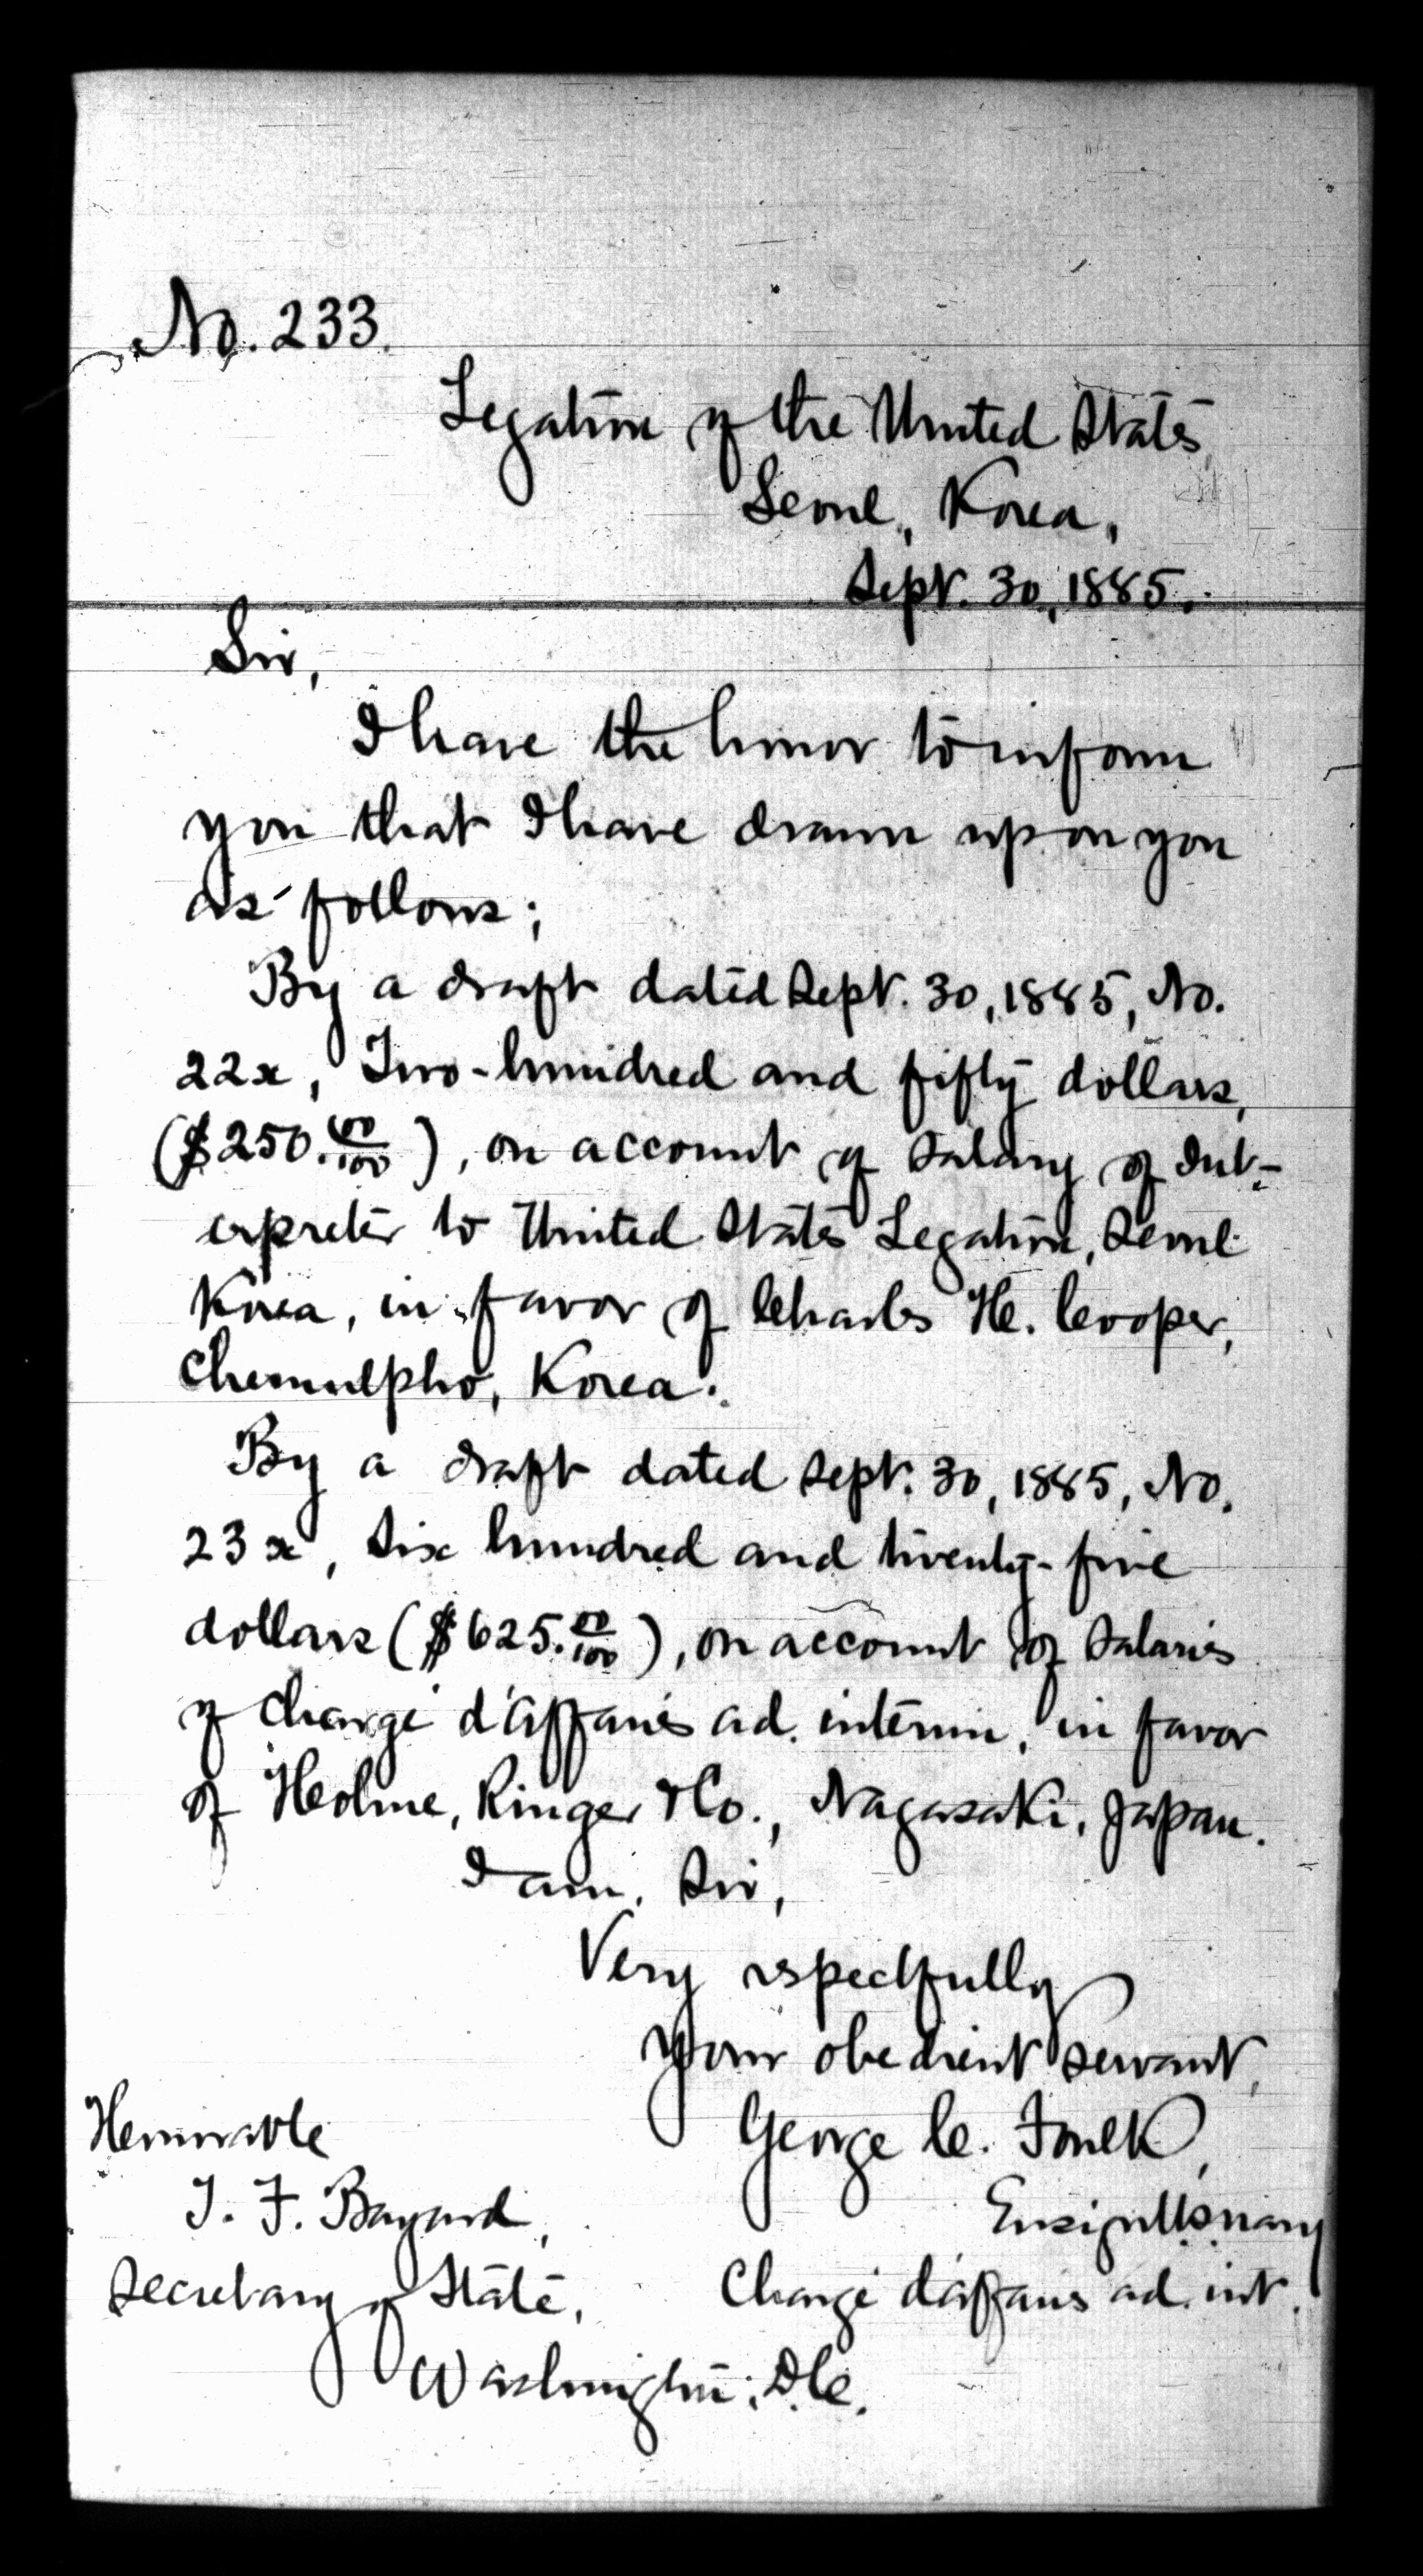 No. 233.
Legation of the United States
Seoul, Korea,
Sept. 30, 1885.
Sir,
I have the honor to inform
you that I have drawn upon you
as follows;
By a draft dated Sept. 30, 1885, No.
22x, Two-hundred and fifty dollars,
($250.00/100), on account of salary of Int-
erpreter to United States Legation, Seoul
Korea, in favor of Charles H. Cooper,
Chemulpho, Korea.
By a draft dated Sept. 30, 1885, No.
23x, Six hundred and twenty-five
dollars ($625.00/100), on account of salaries
of Chargé d'affaires ad. interim, in favor
of Holme, Ringer & Co., Nagasaki, Japan.
I am, Sir,
Very respectfully
Your obedient servant,
Honorable
George C. Foulk,
T. F. Bayard,
Ensign U.S. Navy
Secretary of State,
Chargé d'affaires ad. int.
Washington, D.C.